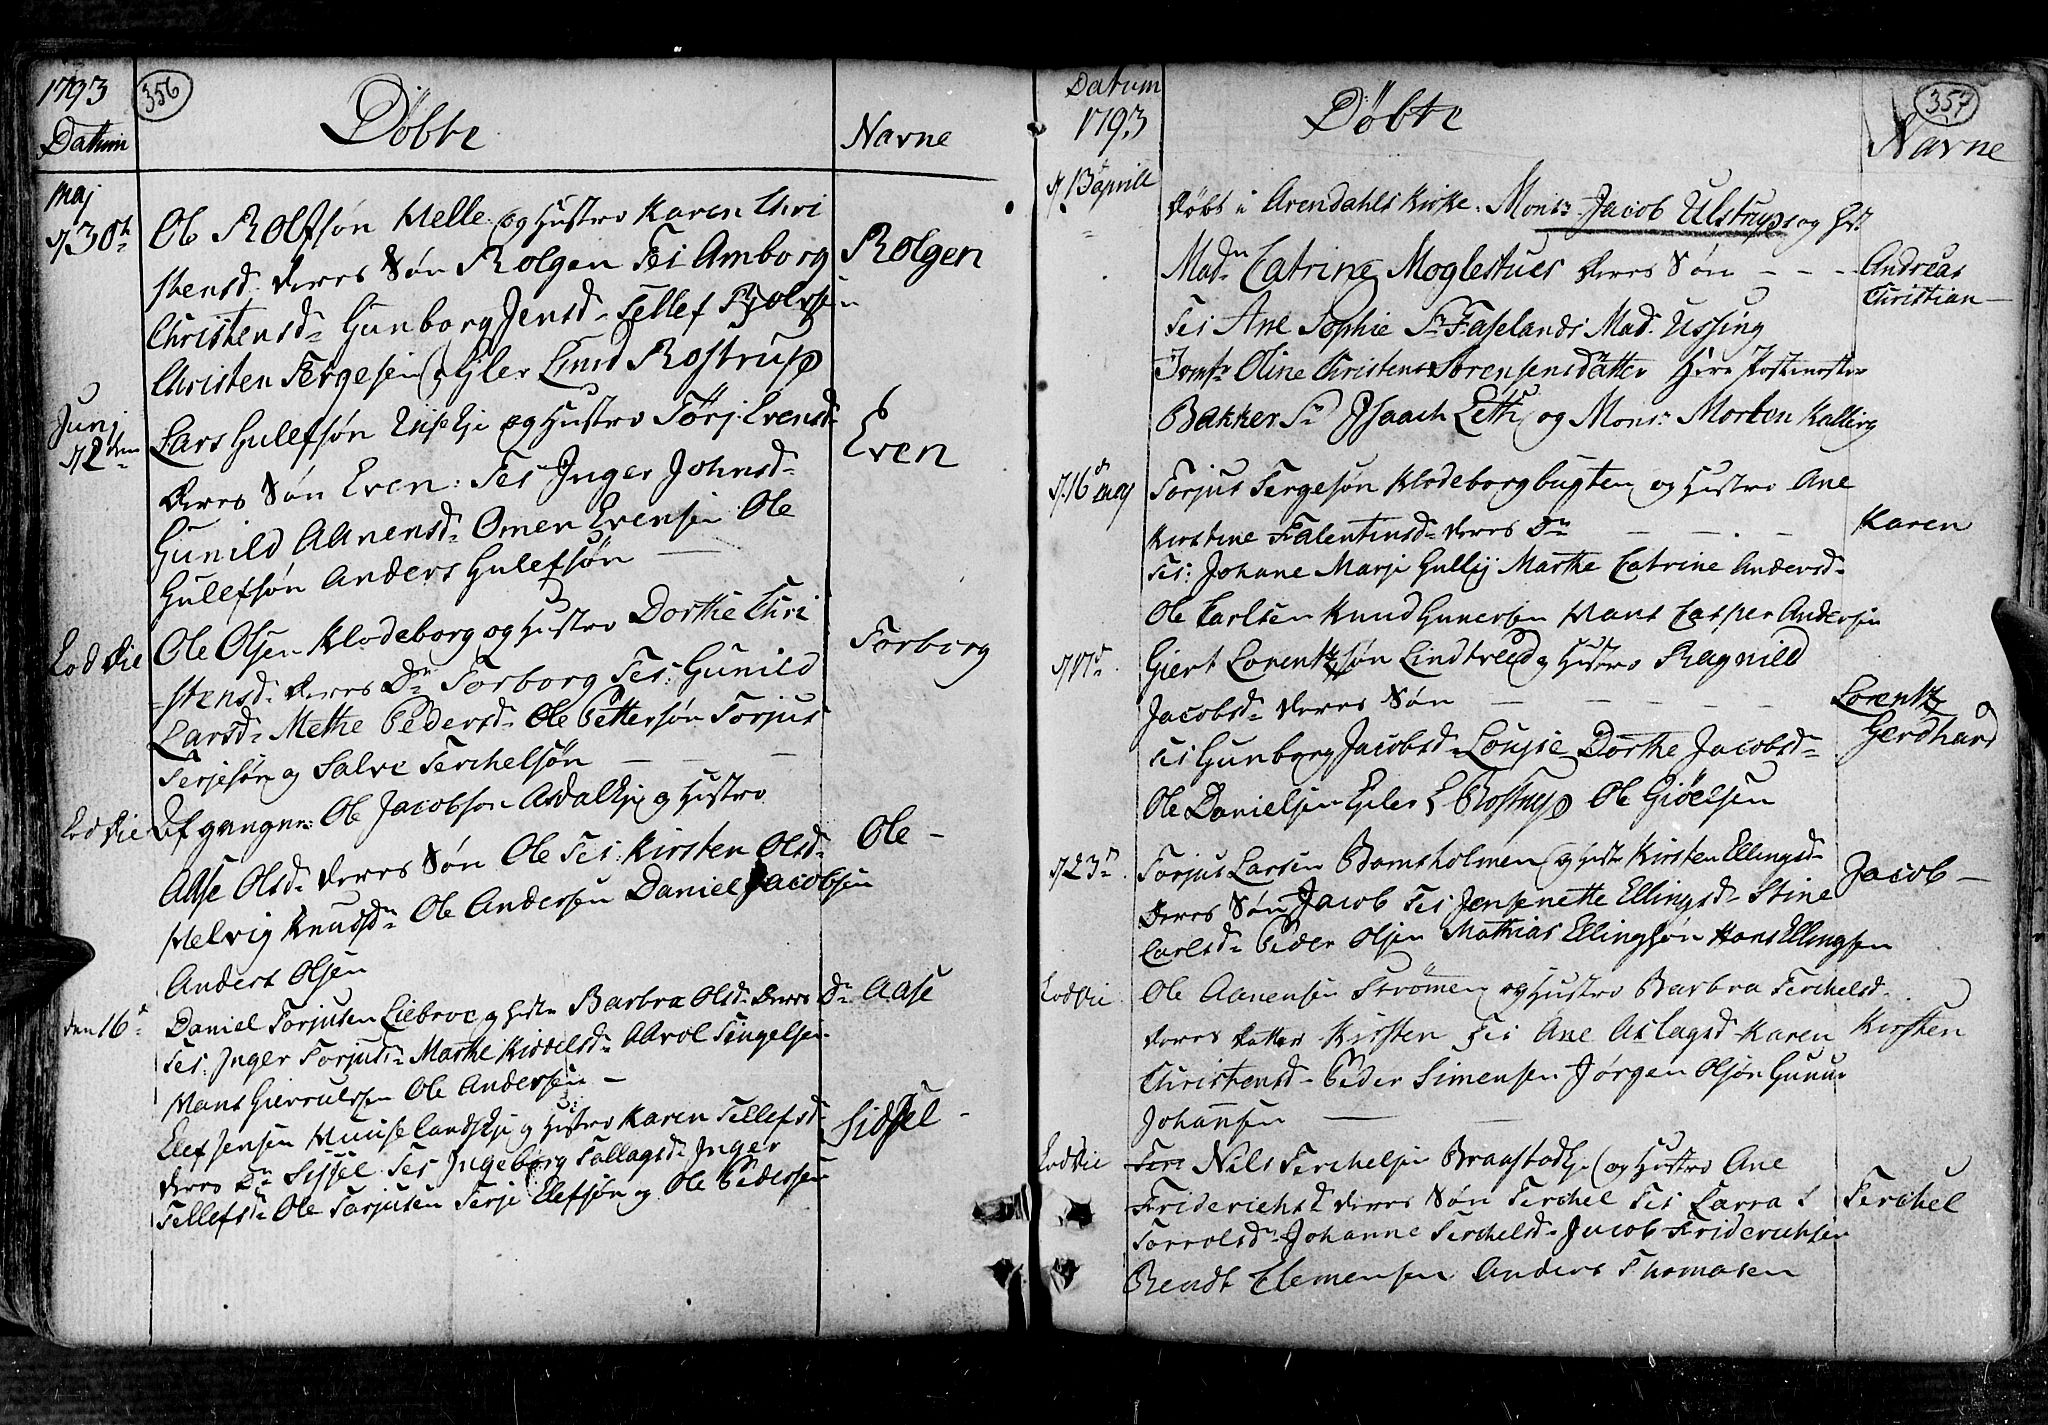 1793
356
Datum
Döbte
Navne
Maj
d 30te
Ole Rolfsøn Helle og Hustro Karen Chri
stensd. deres Søn Rolgen Tes Amborg
Rolgen
Christensd. Gunborg Jensd. Tellef
Christen Tergesen og Ejler Lund Rostrup
Junj
d 2den
Lars Gulefsøn og Hustro Tørj. Evensd.
Even
deres Søn Even: Tes Inger Johnsd.
Gunild Aanensd. Omen Evensen Ole
Gulefsøn Anders Gulefsøn
Eod die
Ole Olsen Klodeborg og Hustro Dorthe Chri
Torborg
stensd. deres Dr Torborg Tes: Gunild
Larsd. Methe Pedersd. Ole Pettersøn Torjus
Terjesøn og Salve Terchelsøn
Eod die
Ole Jacobsøn Asdalkje og Hustro
Ole
Aase Olsd. deres Søn Ole Tes: Kirsten Olsd.
Helvig Knudsdr Ole Andersen Daniel Jacobsen
Anders Olsen
den 16d
Daniel Torjusen Liebroe og Hustr Barbra Olsd. deres Dr
Aase
Tes: Inger Torjusd. Marthe Kittelsd. Aarol Tingelsen
Hans Gierrulssen Ole Andersen
Elef Jensen og Hustro Karen Tellefsd.
Sidsel
deres Dr Sissel Tes Ingeborg Tallagsd. Inger
Tellefsd. Ole Tarjusen Terje Elefsøn og Ole Pedersen
Datum
1793
Döbte
357
Navne
d. 13 April
døbt i Arendahls Kirke. Monsr Jacob Ulstrups og Hst.
Madn Catrine Moglestues deres Søn
Andreas
Christian
Tes Ane Sophie Sr Faselands Mad. Ussing
Jomfr Oline Christence Sorensensdatter Herr Postmester
Bakker Sr Isaach Leth og Monsr. Morten Kalberg
d. 16d Maj
Torjus Tergesøn Klodeborgbugten og Hustro Ane
Kirstine Falentinsd. deres Dr
Karen
Tes: Johane Marje Gullij Marthe Catrine Andersd.
Ole Carlsen Knud Gunersen Hans Casper Andersen
d 17d
Giert Lorentzsøn Lindtved og Hustro Ragnild
Jacobsd. deres Søn
Lorentz
Gerdhard
Tes Gunborg Jacobsd. Lousie Dorthe Jacobsd.
Ole Danielsen Ejler L Rostrup Ole Giöelsen
d 23d.
Torjus Larsen Bomsholmen og Hustr Kirsten Ellingsd.
Jacob
deres Søn Jacob Tes Jensenette Ellingsd. Stine
Carlsd. Peder Olsen Mathias Ellingsøn Hans Ellingsen
Eod die.
Ole Aanensen Strömen og Hustro Barbra Terchelsd.
deres Datter Kirsten Tes Ane Aslagsd. Karen
Kirsten
Christensd. Peder Simensen Jørgen Olsøn Gunur
Johansen
Eod die
Nils Terchelsen Braastadkje og Hustro Ane
Friderichsd deres Søn Terchel Tes Sarra
Terchel
Torrolsd. Johanne Terchelsd. Jacob Friderichsen
Bendt Clemensen Anders Thomasen